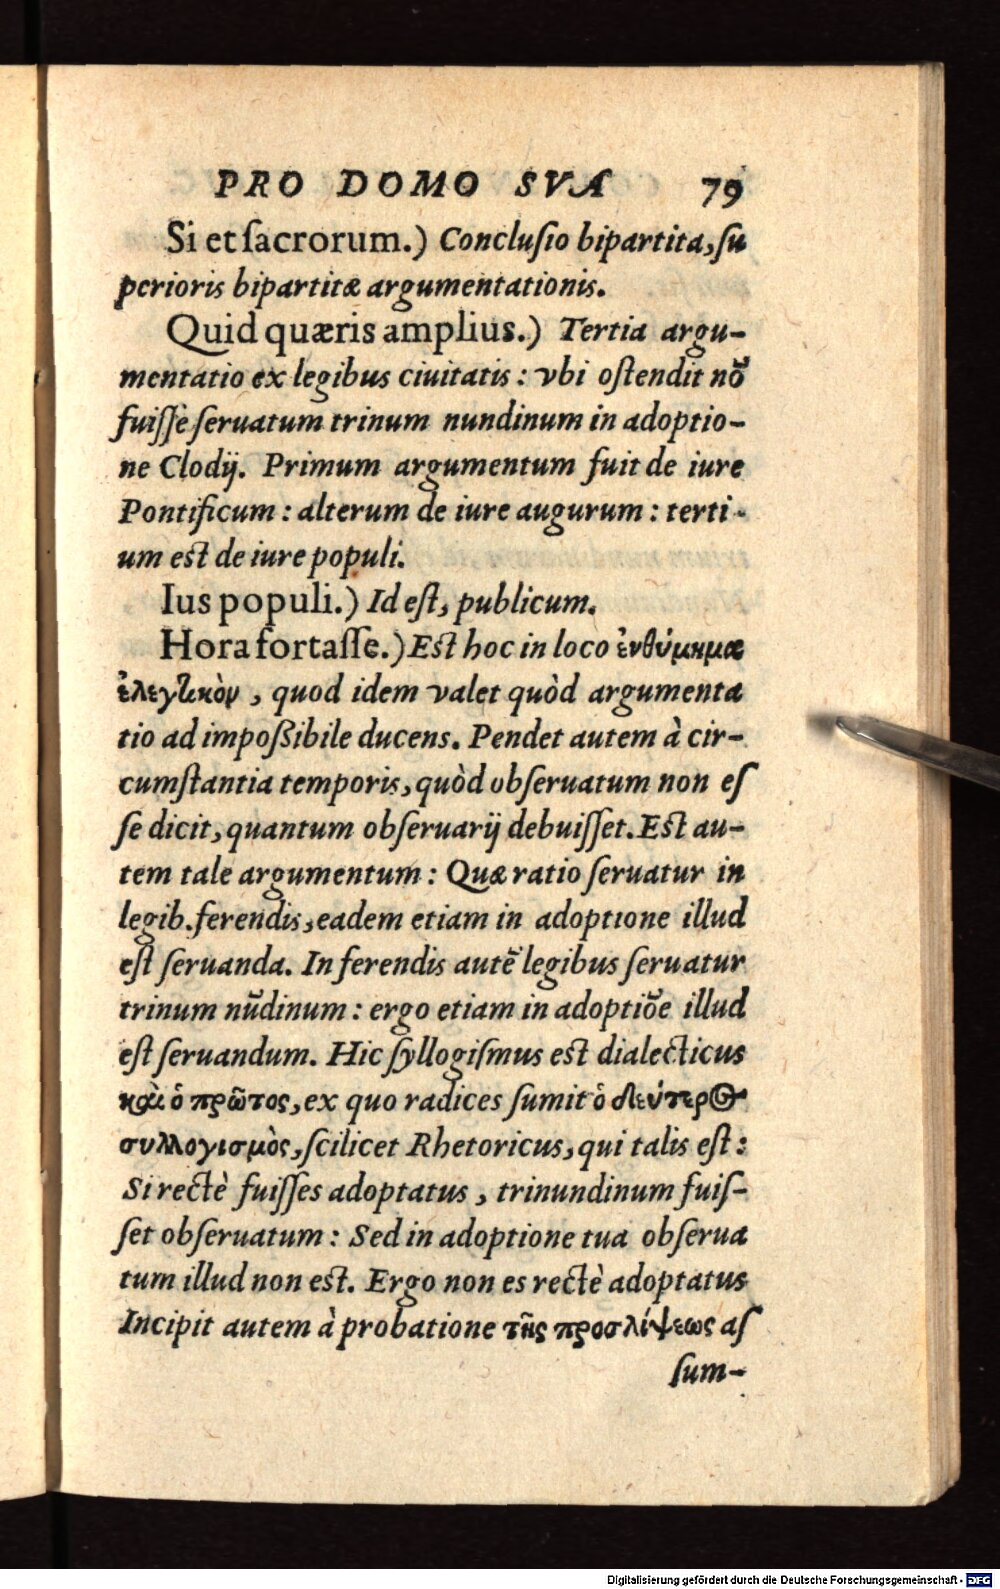 PRO DOMO SVA 79
Si et sacrorum.) Conclusio bipartita, su
perioris bipartitæ argumentationis.
Quid quæris amplius.) Tertia argu-
mentatio ex legibus ciuitatis: vbi ostendit nō
fuisse seruatum trinum nundinum in adoptio-
ne Clodij. Primum argumentum fuit de iure
Pontificum: alterum de iure augurum: terti-
um est de iure populi.
Ius populi.) Id est, publicum.
Hora fortasse.) Est hoc in loco ἐνθύμημα
ἐλεγτικὸν, quod idem valet quòd argumenta
tio ad impoßibile ducens. Pendet autem à cir-
cumstantia temporis, quòd obseruatum non es
se dicit, quantum obseruarij debuisset. Est au-
tem tale argumentum: Quæ ratio seruatur in
legib. ferendis, eadem etiam in adoptione illud
est seruanda. In ferendis autē legibus seruatur
trinum nūdinum: ergo etiam in adoptiōe illud
est seruandum. Hic syllogismus est dialecticus
καὶ ὁ πρῶτος, ex quo radices sumit ὁ δεύτερος
συλλογισμὸς, scilicet Rhetoricus, qui talis est:
Si rectè fuisses adoptatus, trinundinum fuis-
set obseruatum: Sed in adoptione tua obserua
tum illud non est. Ergo non es rectè adoptatus
Incipit autem à probatione τῆς προσλήψεως as
sum-
Digitalisierung gefördert durch die Deutsche Forschungsgemeinschaft - DFG